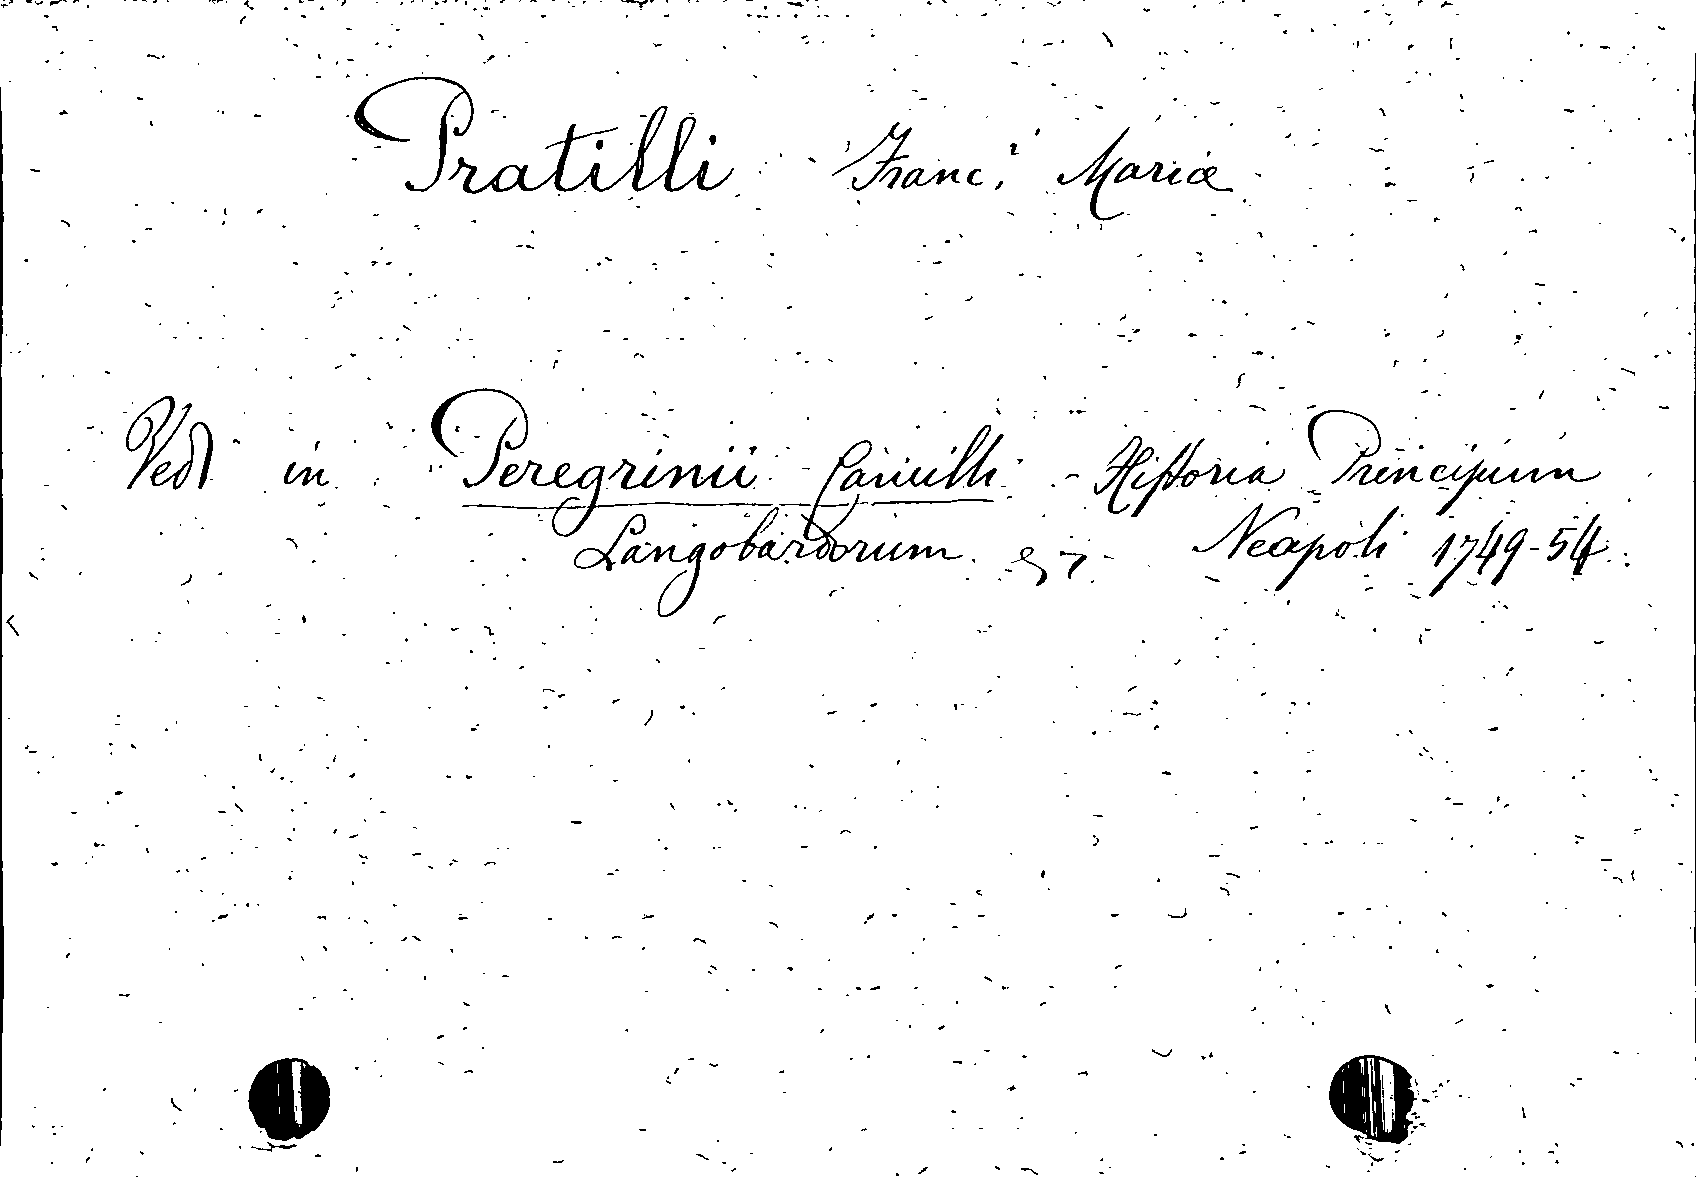 Pratilli Franc.i Mariæ
Vedi in Peregrinii Camilli - Historia Principum
Langobardorum Neapoli 1749-54.